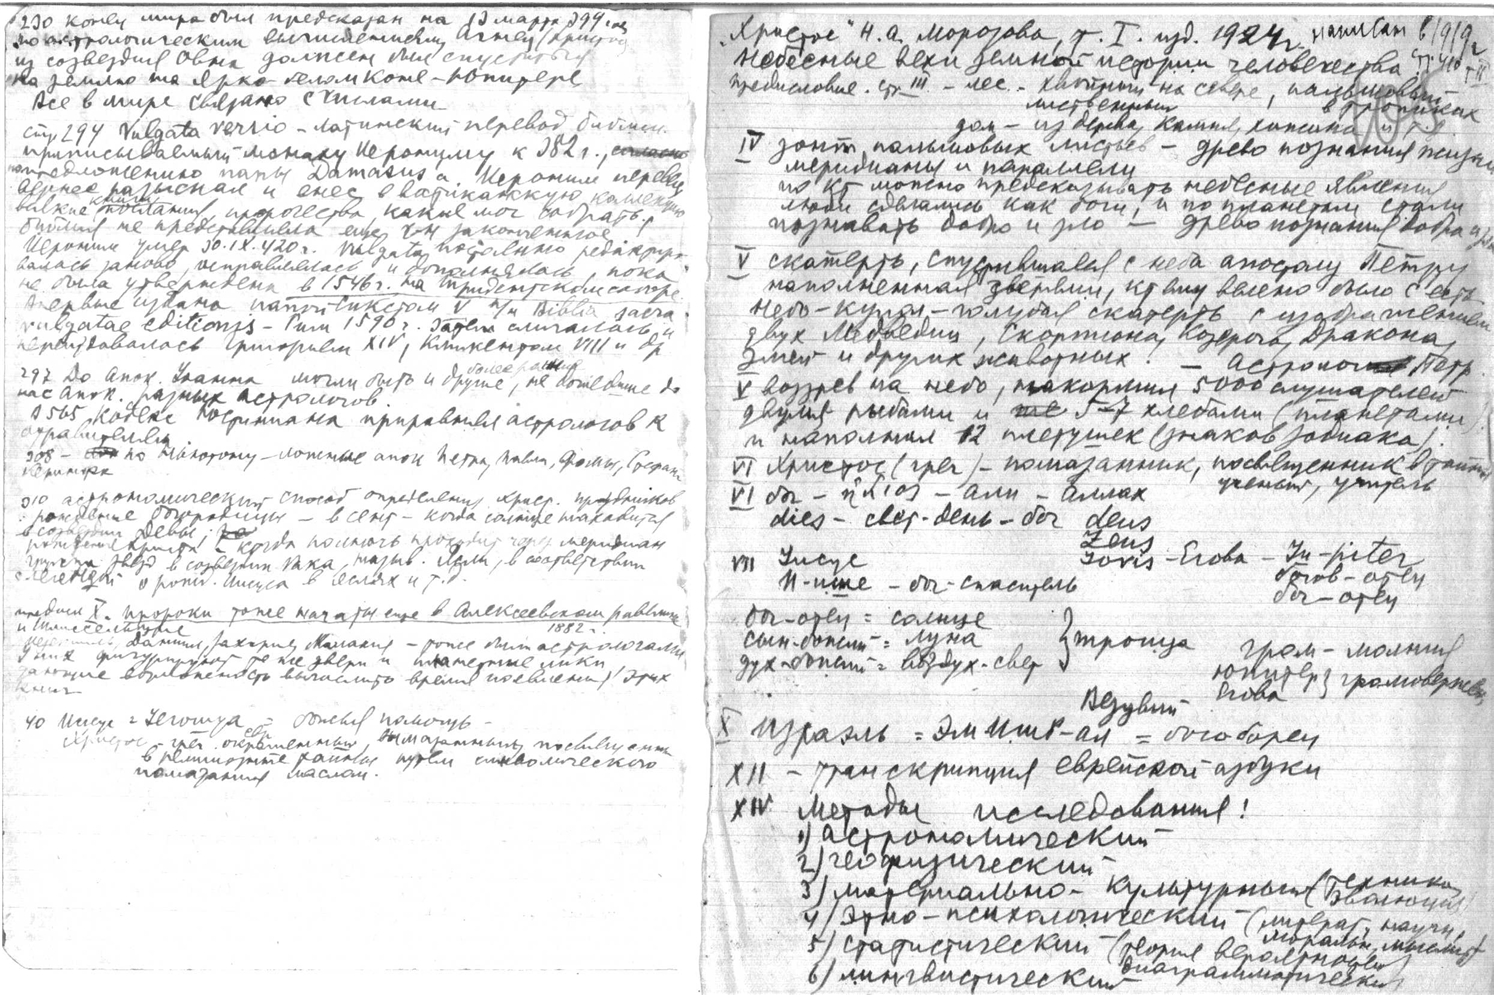 230 конец мира был предсказан на 13 марта 399 г. на
по астрологическим вычислениям Агнец (Христос)
из созвездия Овна должен был спуститься
на землю на ярко белом коне - Юпитере
Все в мире связано с числами
стр 294 Vulgata versio - латинский перевод библии
приписываемый монаху Иерониму к 382 г.,
предложению папы Damasus'а. Иероним перевел
вернее разыскал и внес в ватиканскую коллекцию
всякие книги пророчества, какие мог собрать.
библия не представляла еще законченное
Иероним умер 30.IX.420 г. Vulgata постепенно редактиро-
валась заново, исправлялась и дополнялась, пока
не была утверждена в 1546 г. на Тридентском соборе
Впервые издана папой Сикстом V п/н Biblia sacra
vulgatae editionis - Рим 1590 г. Затем сличалась и
переиздавалась Григорием XIV, Климентом VIII и др
297 До Апок. Иоанна могли быть и другие, более ранние не дошедшие до
нас апок. разных астрологов.
В 565 кодекс Юстиниана приравнял астрологов к
отравителям
308 - по - ложные апок Петра, Павла, Фомы, Стефан
310 астрономический способ определения христ. праздников
рождение богородицы - в сент - когда солнце находится
в созвездии Девы;
рождения Христа - когда полночь проходит через меридиан
группа звезд в созвездии Рака, назыв. Ясли, в соответствии
с легендой о рожд. Иисуса в яслях и т.д.
предисл X. пророки тоже начаты еще в Алексеевском равелине
и Шлиссельбурге 1882 г.
Даниил, Захария, Малахия - тоже были астрологами
У них фигурируют те же звери и планетные лики
дающие возможность вычислить время появления этих
книг
40 Иисус = Иегошуа = божья помощь -
Христос - греч. посвящения
в религиозные тайны путем символического
помазания маслом.
"Христос" Н.А. Морозова, т. I. изд. 1924 г. написан в 1919 г
Небесные вехи земной истории человечества стр 410 т II
предисловие. стр III - лес - хвойный на севере, пальмовый
лиственный в тропиках
дом - из дерева, камня, хижина и т.
IV зонт пальмовых листьев - древо познания жизни
меридианы и параллели
по кт можно предсказывать небесные явления
люди сделались как боги, и по планетам стали
познавать добро и зло - древо познания добра и зла
V скатерть, спустившаяся с неба апостолу Петру
наполненная зверьми, кт ему велено было съесть
небо - купол - голубая скатерть с изображением
двух Медведиц, Скорпиона, Козерога, Дракона
Змеи и других животных. - Астроном Петр.
V воззрев на небо, накормил 5000 слушателей
двумя рыбами и 5-7 хлебами (планетами)
и наполнил 12 плетушек (знаков зодиака).
VI Христос (греч) - помазанник, посвященник в тайны
ученый, учитель
VI бог - ηλιος - али - аллах
dies - свет-день - бог deus
Zeus
VII Иисус Jovis - Егова - Ju-piter
И-исце - бог-спаситель богов - отец
бог - отец
бог-отец = солнце
сын-божий = луна } троица
дух-божий = воздух-свет
гром - молния
Юпитер } громовержец
Егова
Везувий
X Израэль = Эл = богоборец
XII - транскрипция еврейской азбуки
XIV Методы исследования!
1) астрономический
2) геофизический
3) материально-культурный (техника, эволюция)
4) этно-психологический - (литерат, научн,
моральн, мыслит
5) статистический - (теория вероятностей
диаграмматический)
6) лингвистический